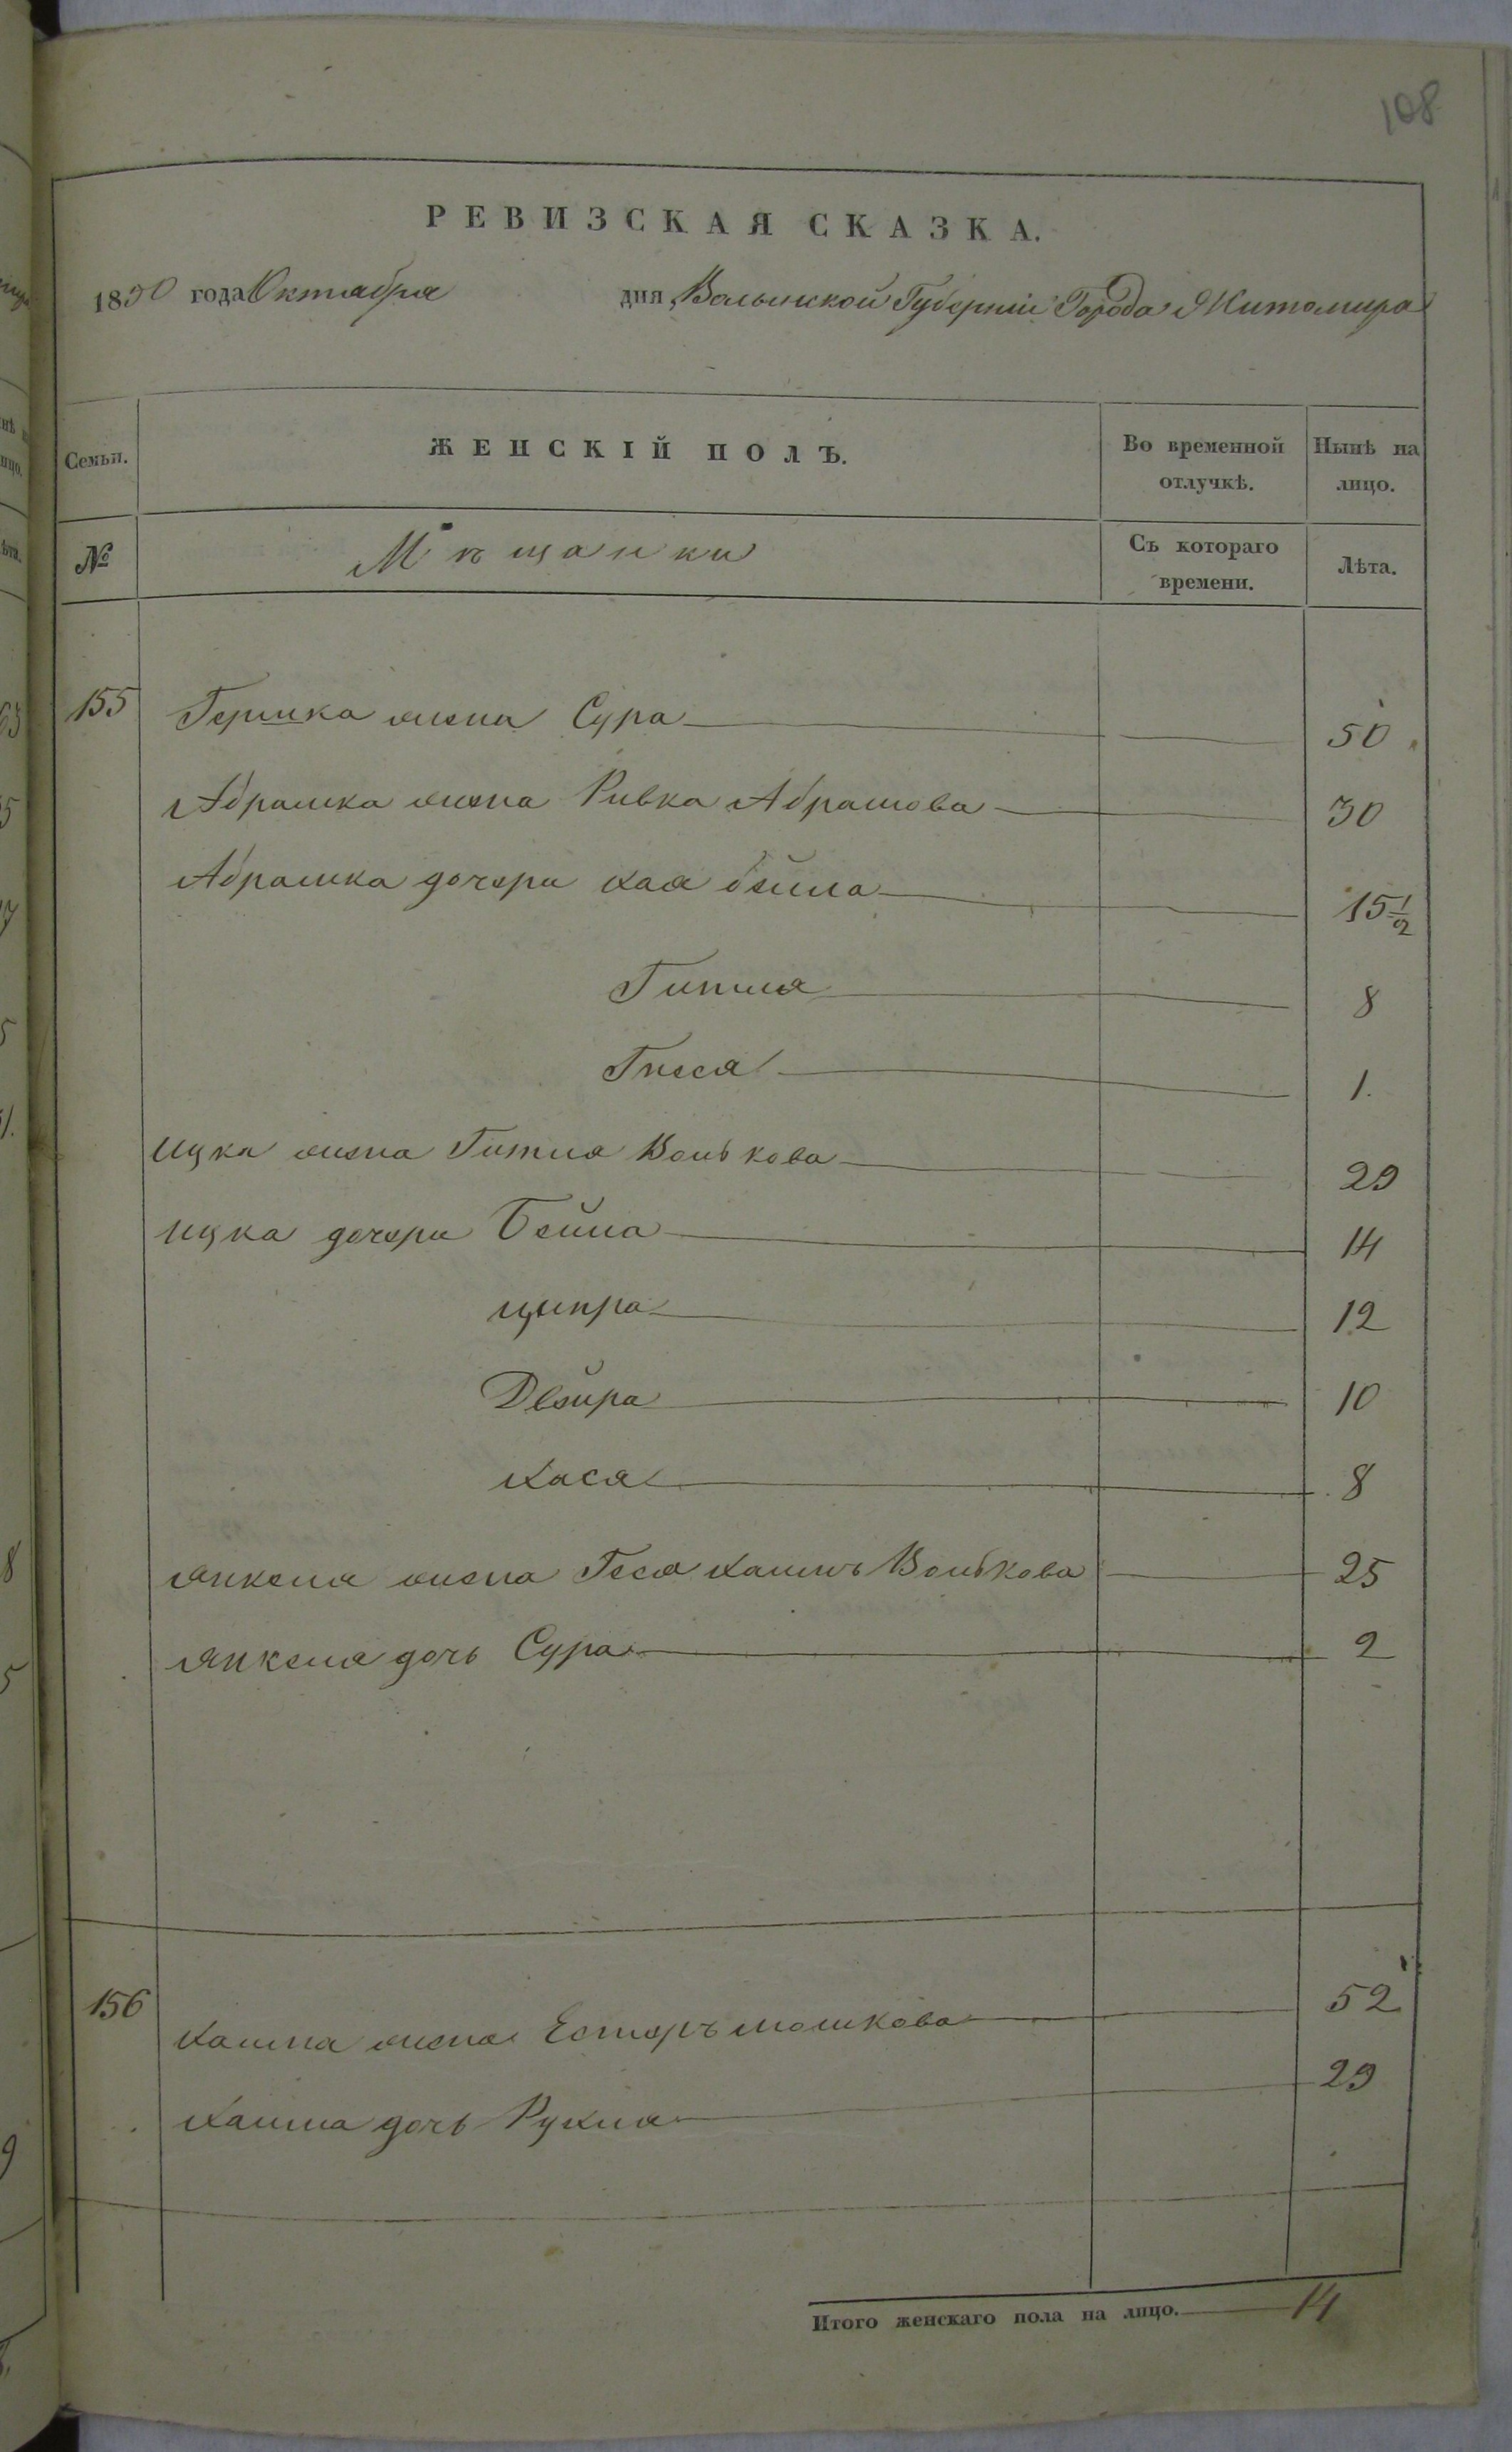 108
РЕВИЗСКАЯ СКАЗКА.
1850 года Октября дня Волынской Губерніи Города Житомира
Семьи. ЖЕНСКІЙ ПОЛЪ. Во временной отлучкѣ. Нынѣ на лицо.
№ Мѣщанки Съ котораго времени. Лѣта.
155 Гершка жена Сура 50
Абрамка жена Ривка Абрамова 30
Абрамка дочери Хая бейла 15 1/2
Гитля 8
Гнеся 1.
ицка жена Гитля Волькова 29
ицка дочери Бейла 14
ципра 12
Двойра 10
Хася 8
янкеля жена Геся Хаимъ Волькова 25
янкеля дочь Сура 2
156 Хаима жена Естеръ мошкова 52
Хаима дочь Рухля 29
Итого женскаго пола на лицо. 14